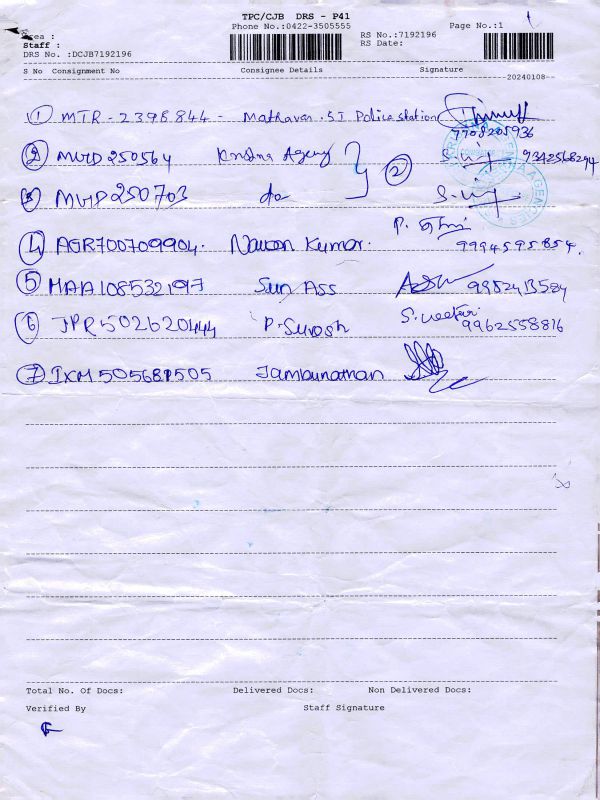 TPC/CJB DRS - P41
Phone No.:0422-3505555
Page No.:1
Area :
Staff :
RS No.:7192196
RS Date:
DRS No. :DCJB7192196
S No Consignment No Consignee Details Signature
20240108
1 MTR - 2398844 - Mathavan. SI Police station
7708205936
2 MWD250564 Krishna Agency 2 9342568294
3 MWD250703 do
4 AGR700709904. Naveen Kumar.
9994595854.
5 MAA1085321197 Sun Ass 9952413584
6 JPR502620444 P. Suresh
9962558816
7 IXM505681505 Jambunathan
Total No. Of Docs: Delivered Docs: Non Delivered Docs:
Verified By Staff Signature